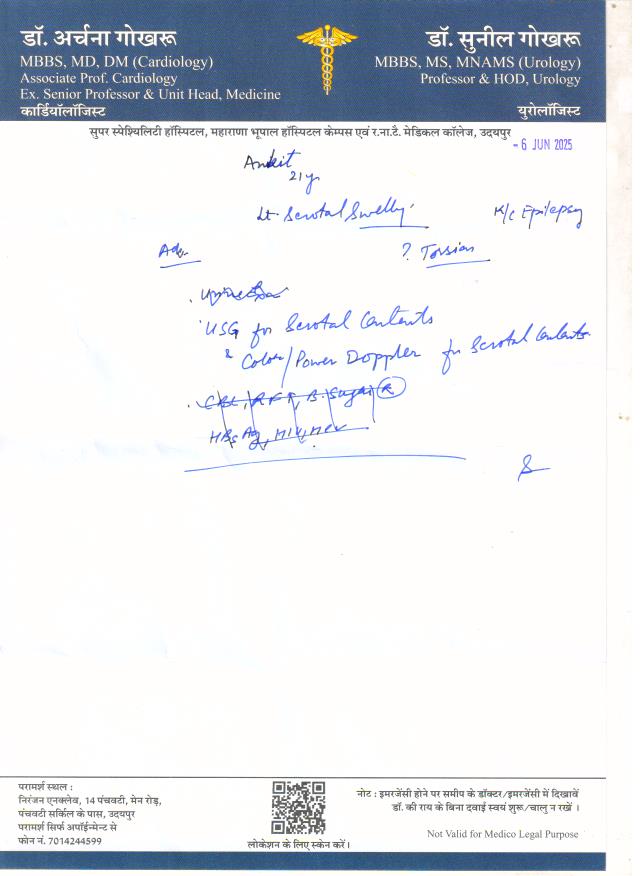 डॉ. अर्चना गोखरू
MBBS, MD, DM (Cardiology)
Associate Prof. Cardiology
Ex. Senior Professor & Unit Head, Medicine
कार्डियॉलॉजिस्ट
डॉ. सुनील गोखरू
MBBS, MS, MNAMS (Urology)
Professor & HOD, Urology
युरोलॉजिस्ट
सुपर स्पेश्यिलिटी हॉस्पिटल, महाराणा भूपाल हॉस्पिटल केम्पस एवं र.ना.टै. मेडिकल कॉलेज, उदयपुर
- 6 JUN 2025
Ankit
21 yr
Lt. Scrotal Swelling
K/c Epilepsy
Adv.
? Torsion
USG for Scrotal Contents
& Color/Power Doppler for Scrotal Contents
CBC, RFT, B. Sugar R
HBsAg, HIV, HCV
परामर्श स्थल :
निरंजन एनक्लेव, 14 पंचवटी, मेन रोड़,
पंचवटी सर्किल के पास, उदयपुर
परामर्श सिर्फ अपॉईन्मेन्ट से
फोन नं. 7014244599
लोकेशन के लिए स्केन करें।
नोट : इमरजेंसी होने पर समीप के डॉक्टर/इमरजेंसी में दिखावें
डॉ. की राय के बिना दवाई स्वयं शुरू/चालु न रखें ।
Not Valid for Medico Legal Purpose